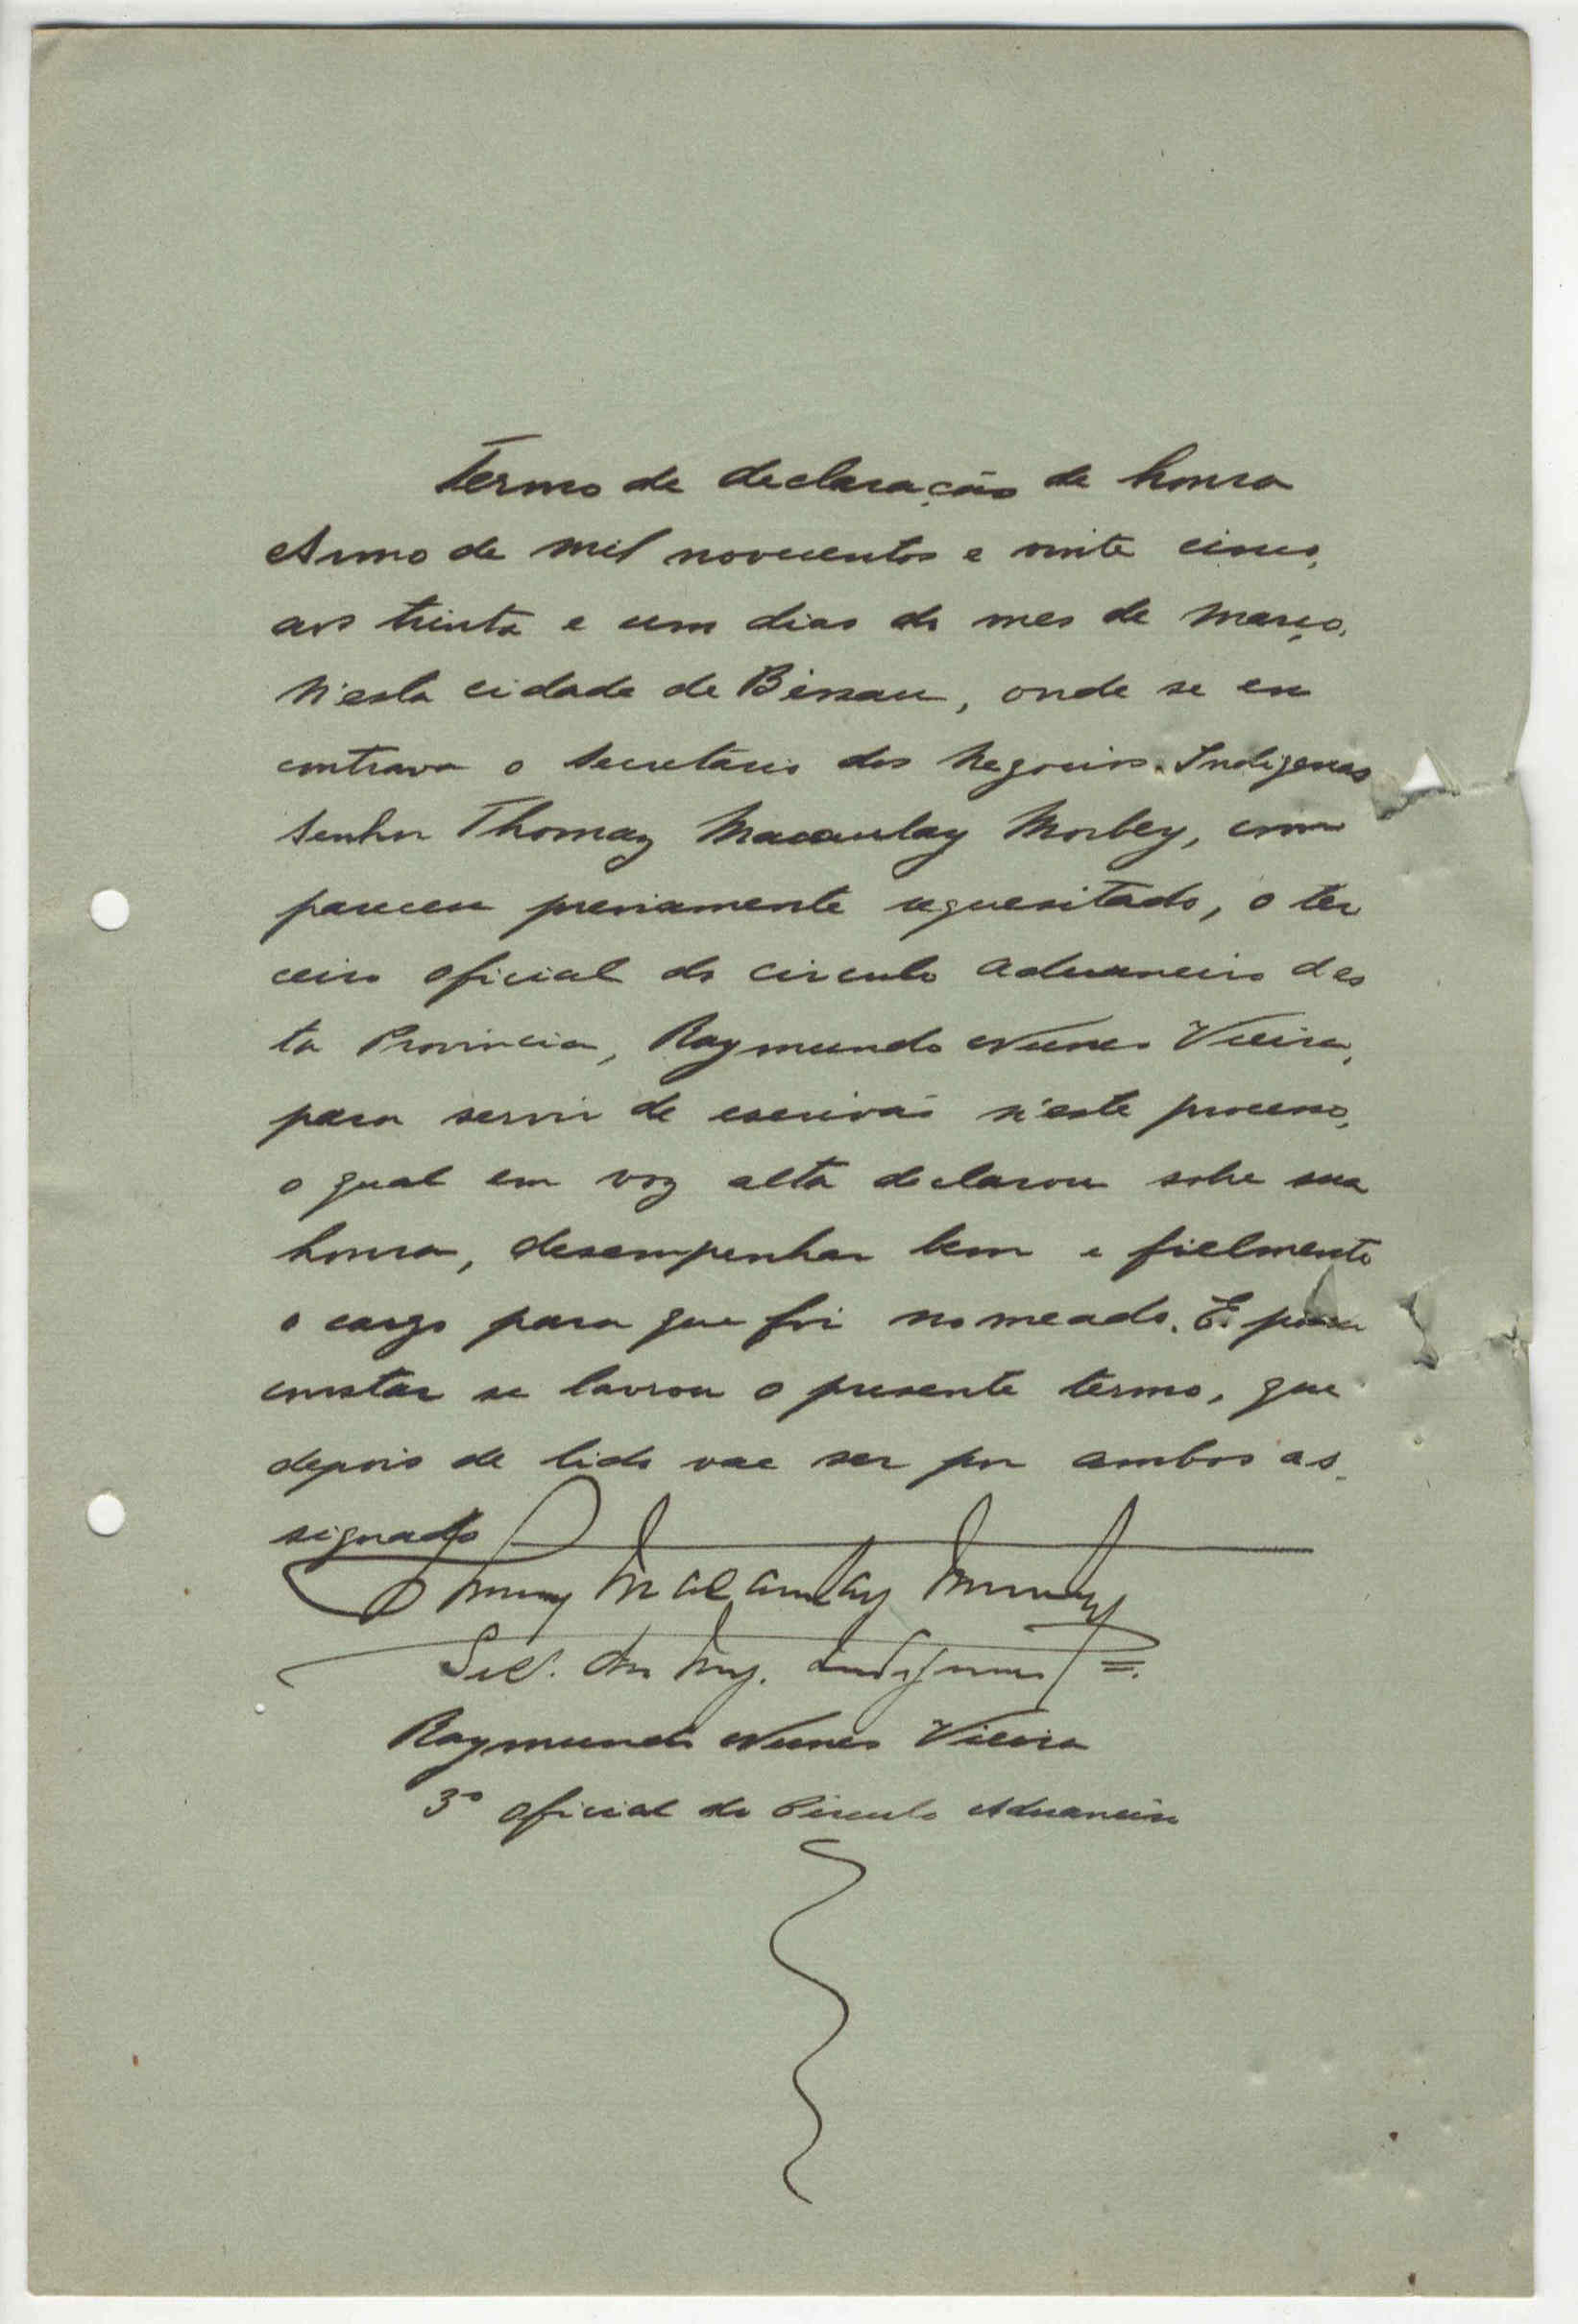 Termo de declaração de honra
Anno de mil novecentos e vinte cinco,
aos trinta e um dias do mes de março,
n'esta cidade de Bissau, onde se en
contrava o secretário dos Negocios Indigenas
senhor Thomaz Macaulay Morbey, com
pareceu previamente requesitado, o ter
ceiro oficial do circulo aduaneiro des
ta Provincia, Raymundo Nunes Vieira,
para servir de escrivão n'este processo,
o qual em voz alta declarou sobre sua
honra, desempenhar bem e fielmente
o cargo para que foi nomeado. E para
constar se lavrou o presente termo, que
depois de lido vae ser por ambos as
signado
Thomaz Macaulay Morbey
Sec. dos Neg. Indigenas
Raymundo Nunes Vieira
3º oficial do Circulo Aduaneiro